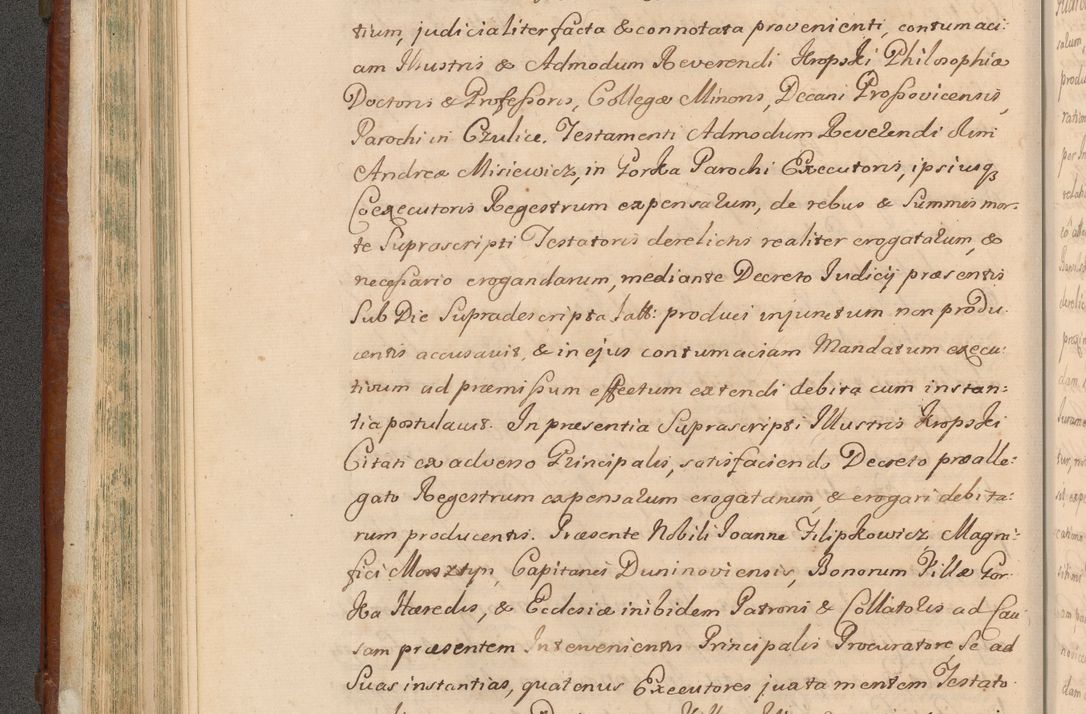 tium, judicialiter facta & connotata provenienti, contumaci:
am Illustris & Admodum Reverendi Kropski Philosophiæ
Doctoris & Professoris, Collegæ Minoris, Decani Prossovicensis,
Parochi in Czulice, Testamenti Admodum Reverendi Dñni
Andreæ Misiewicz, in Gorka Parochi Executoris, ipsiusq
Coexecutoris Regestrum expensarum, de rebus & Summis mor:
te Suprascripti Testatoris derelictis realiter erogatarum, &
necessario erogandarum, mediante Decreto Judicij præsentis
Sub Die Supradescripta latt: produci injunctum non produ:
centis accusavit, & in ejus contumaciam Mandatum execu:
tivum ad præmissum effectum extendi debita cum instan:
tia postulavit. In præsentia Suprascripti Illustris Kropski
Citati ex adverso Principalis, satisfaciendo Decreto præalle:
gato Regestrum expensarum erogatarum, & erogari debita:
rum producentis. Præsente Nobili Joanne Filipkowicz Magni:
fici Morsztyn, Capitanei Duninoviensis, Bonorum Villæ Gor:
ka Hæredis, & Ecclesiæ inibidem Patroni & Collatoris ad Cau
sam præsentem Intervenientis Principalis Procuratore Se ad
Suas instantias, quatenus Executores juxta mentem Testato: